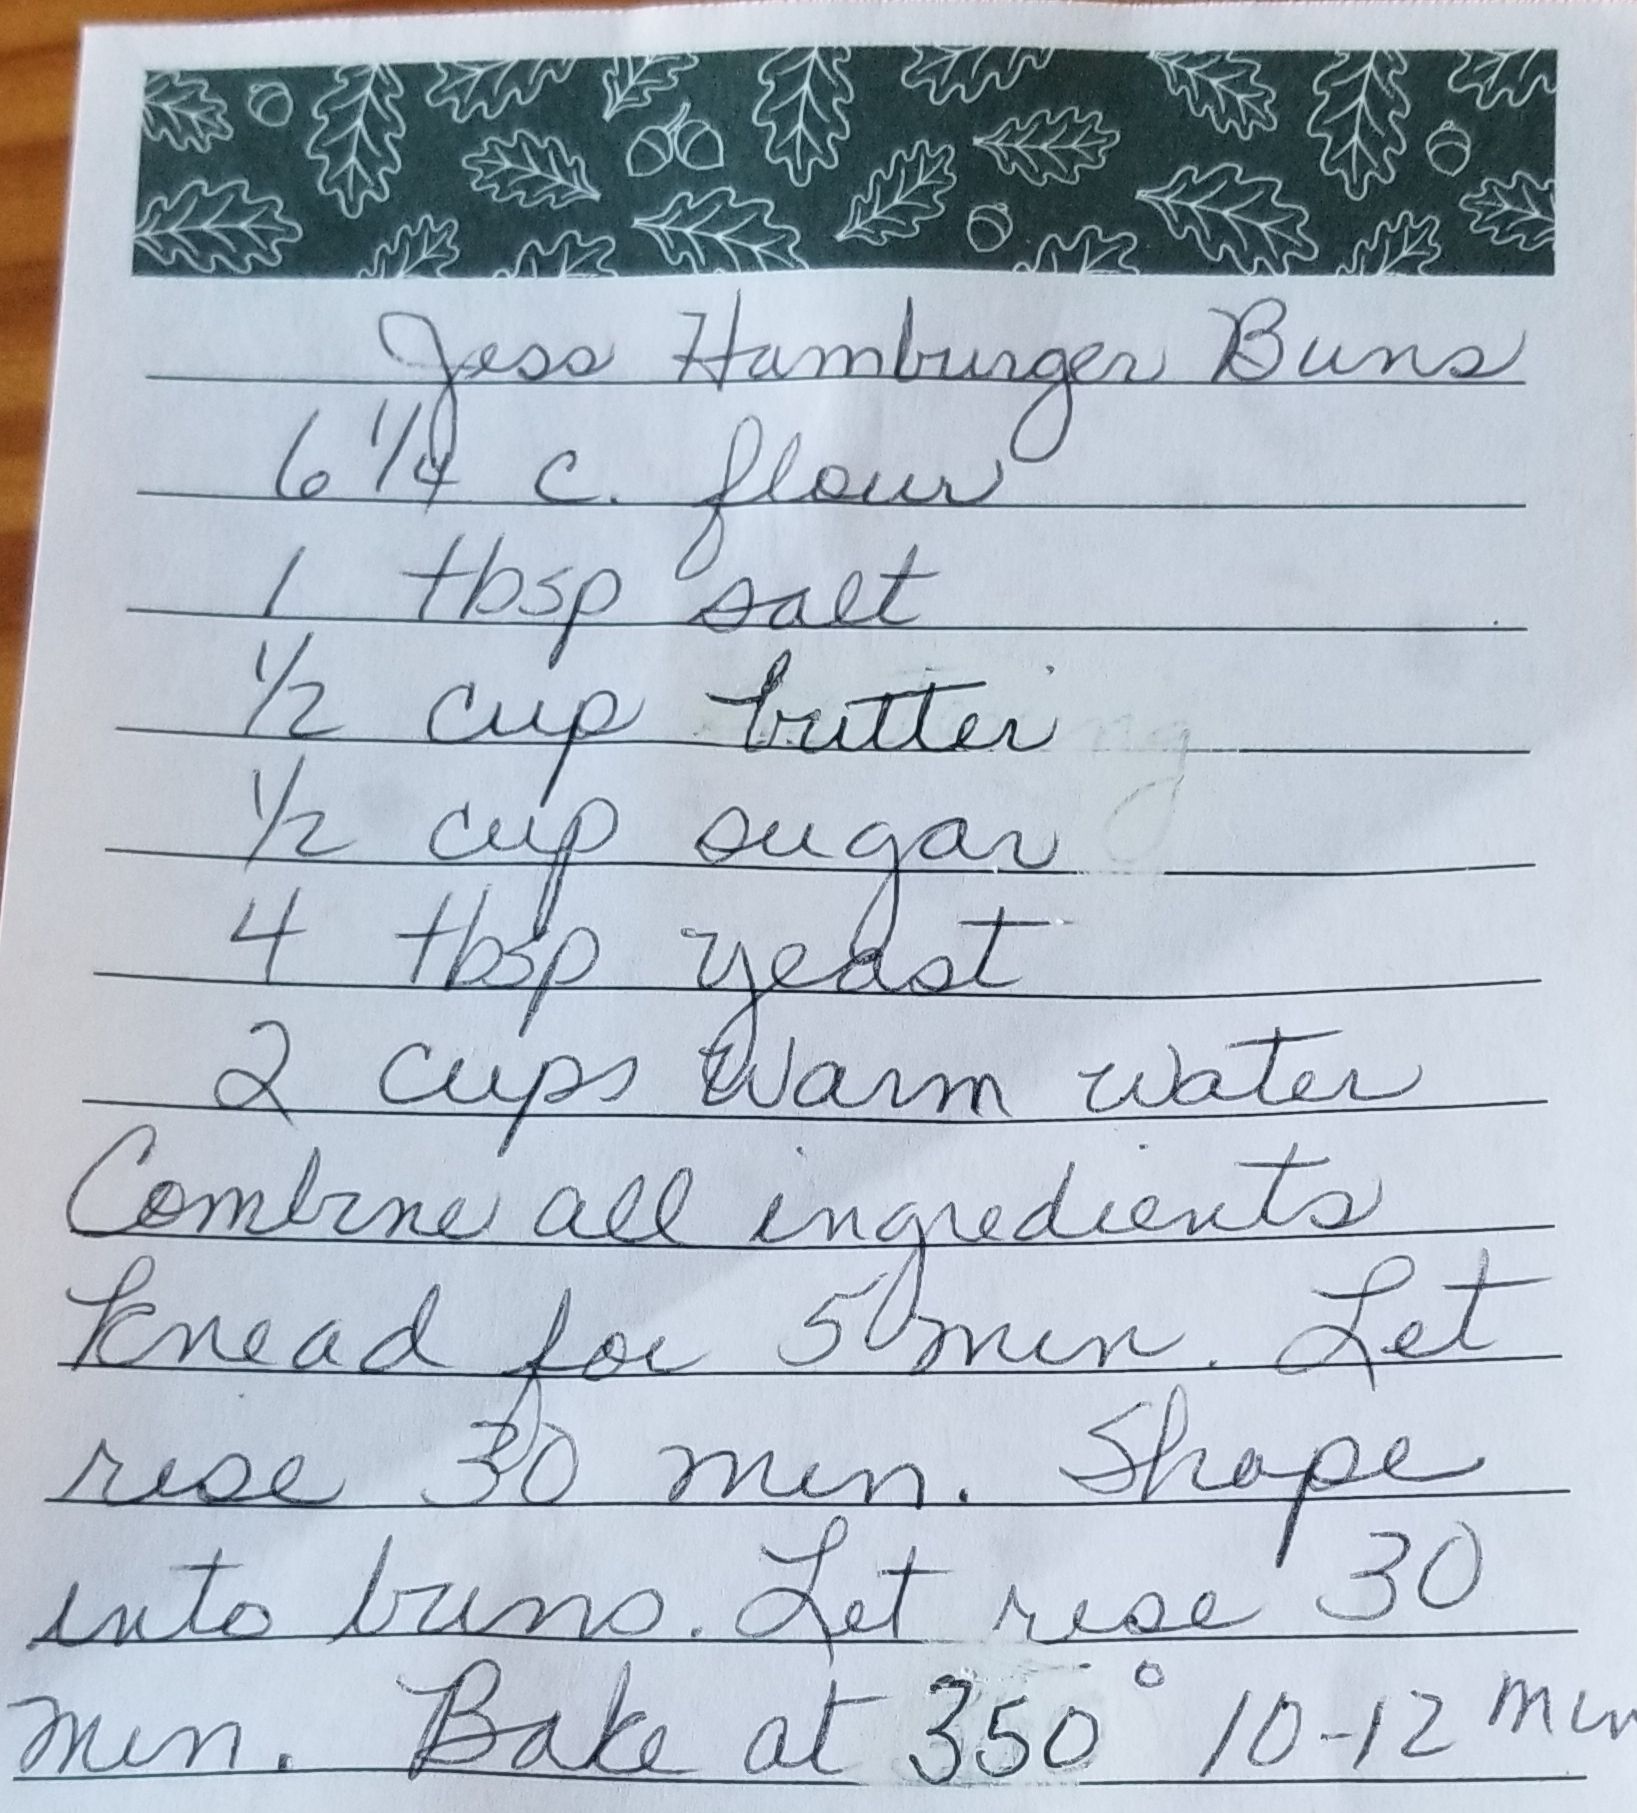 Jess Hamburger Buns
6 1/4 c. flour
1 tbsp salt
1/2 cup butter
1/2 cup sugar
4 tbsp yeast
2 cups warm water
Combine all ingredients
Knead for 5 min. Let
rise 30 min. Shape
into buns. Let rise 30
min. Bake at 350° 10-12 min